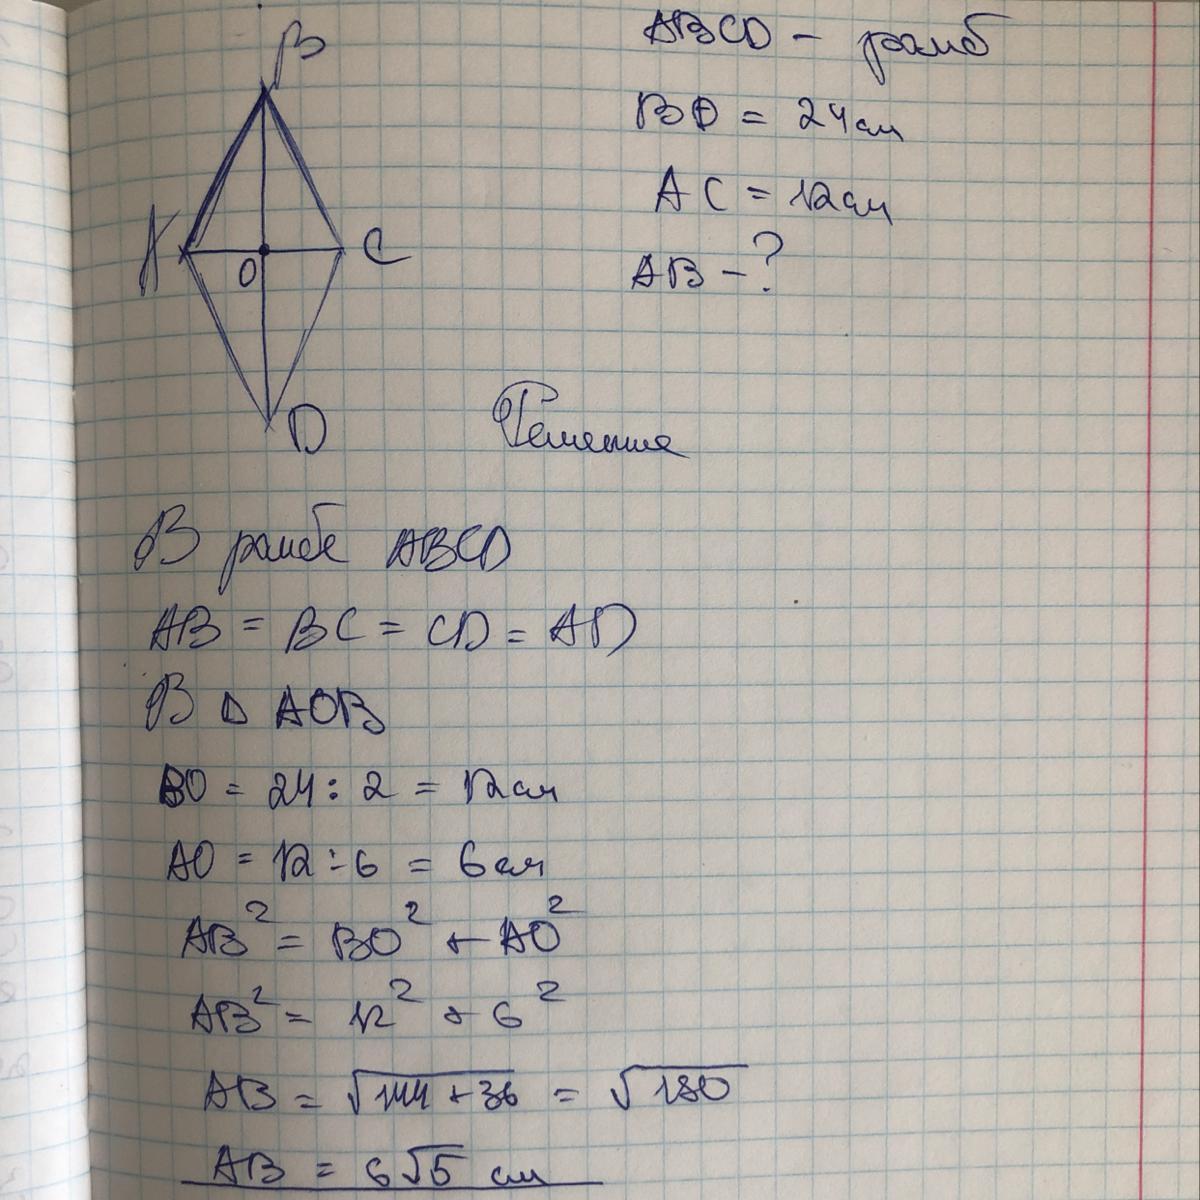 B
A
C
O
D
ABCD - ромб
BD = 24 см
AC = 12 см
AB - ?
Решение
В ромбе ABCD
AB = BC = CD = AD
В △ AOB
BO = 24 : 2 = 12 см
AO = 12 : 6 = 6 см
AB² = BO² + AO²
AB² = 12² + 6²
AB = √144 + 36 = √180
AB = 6√5 см